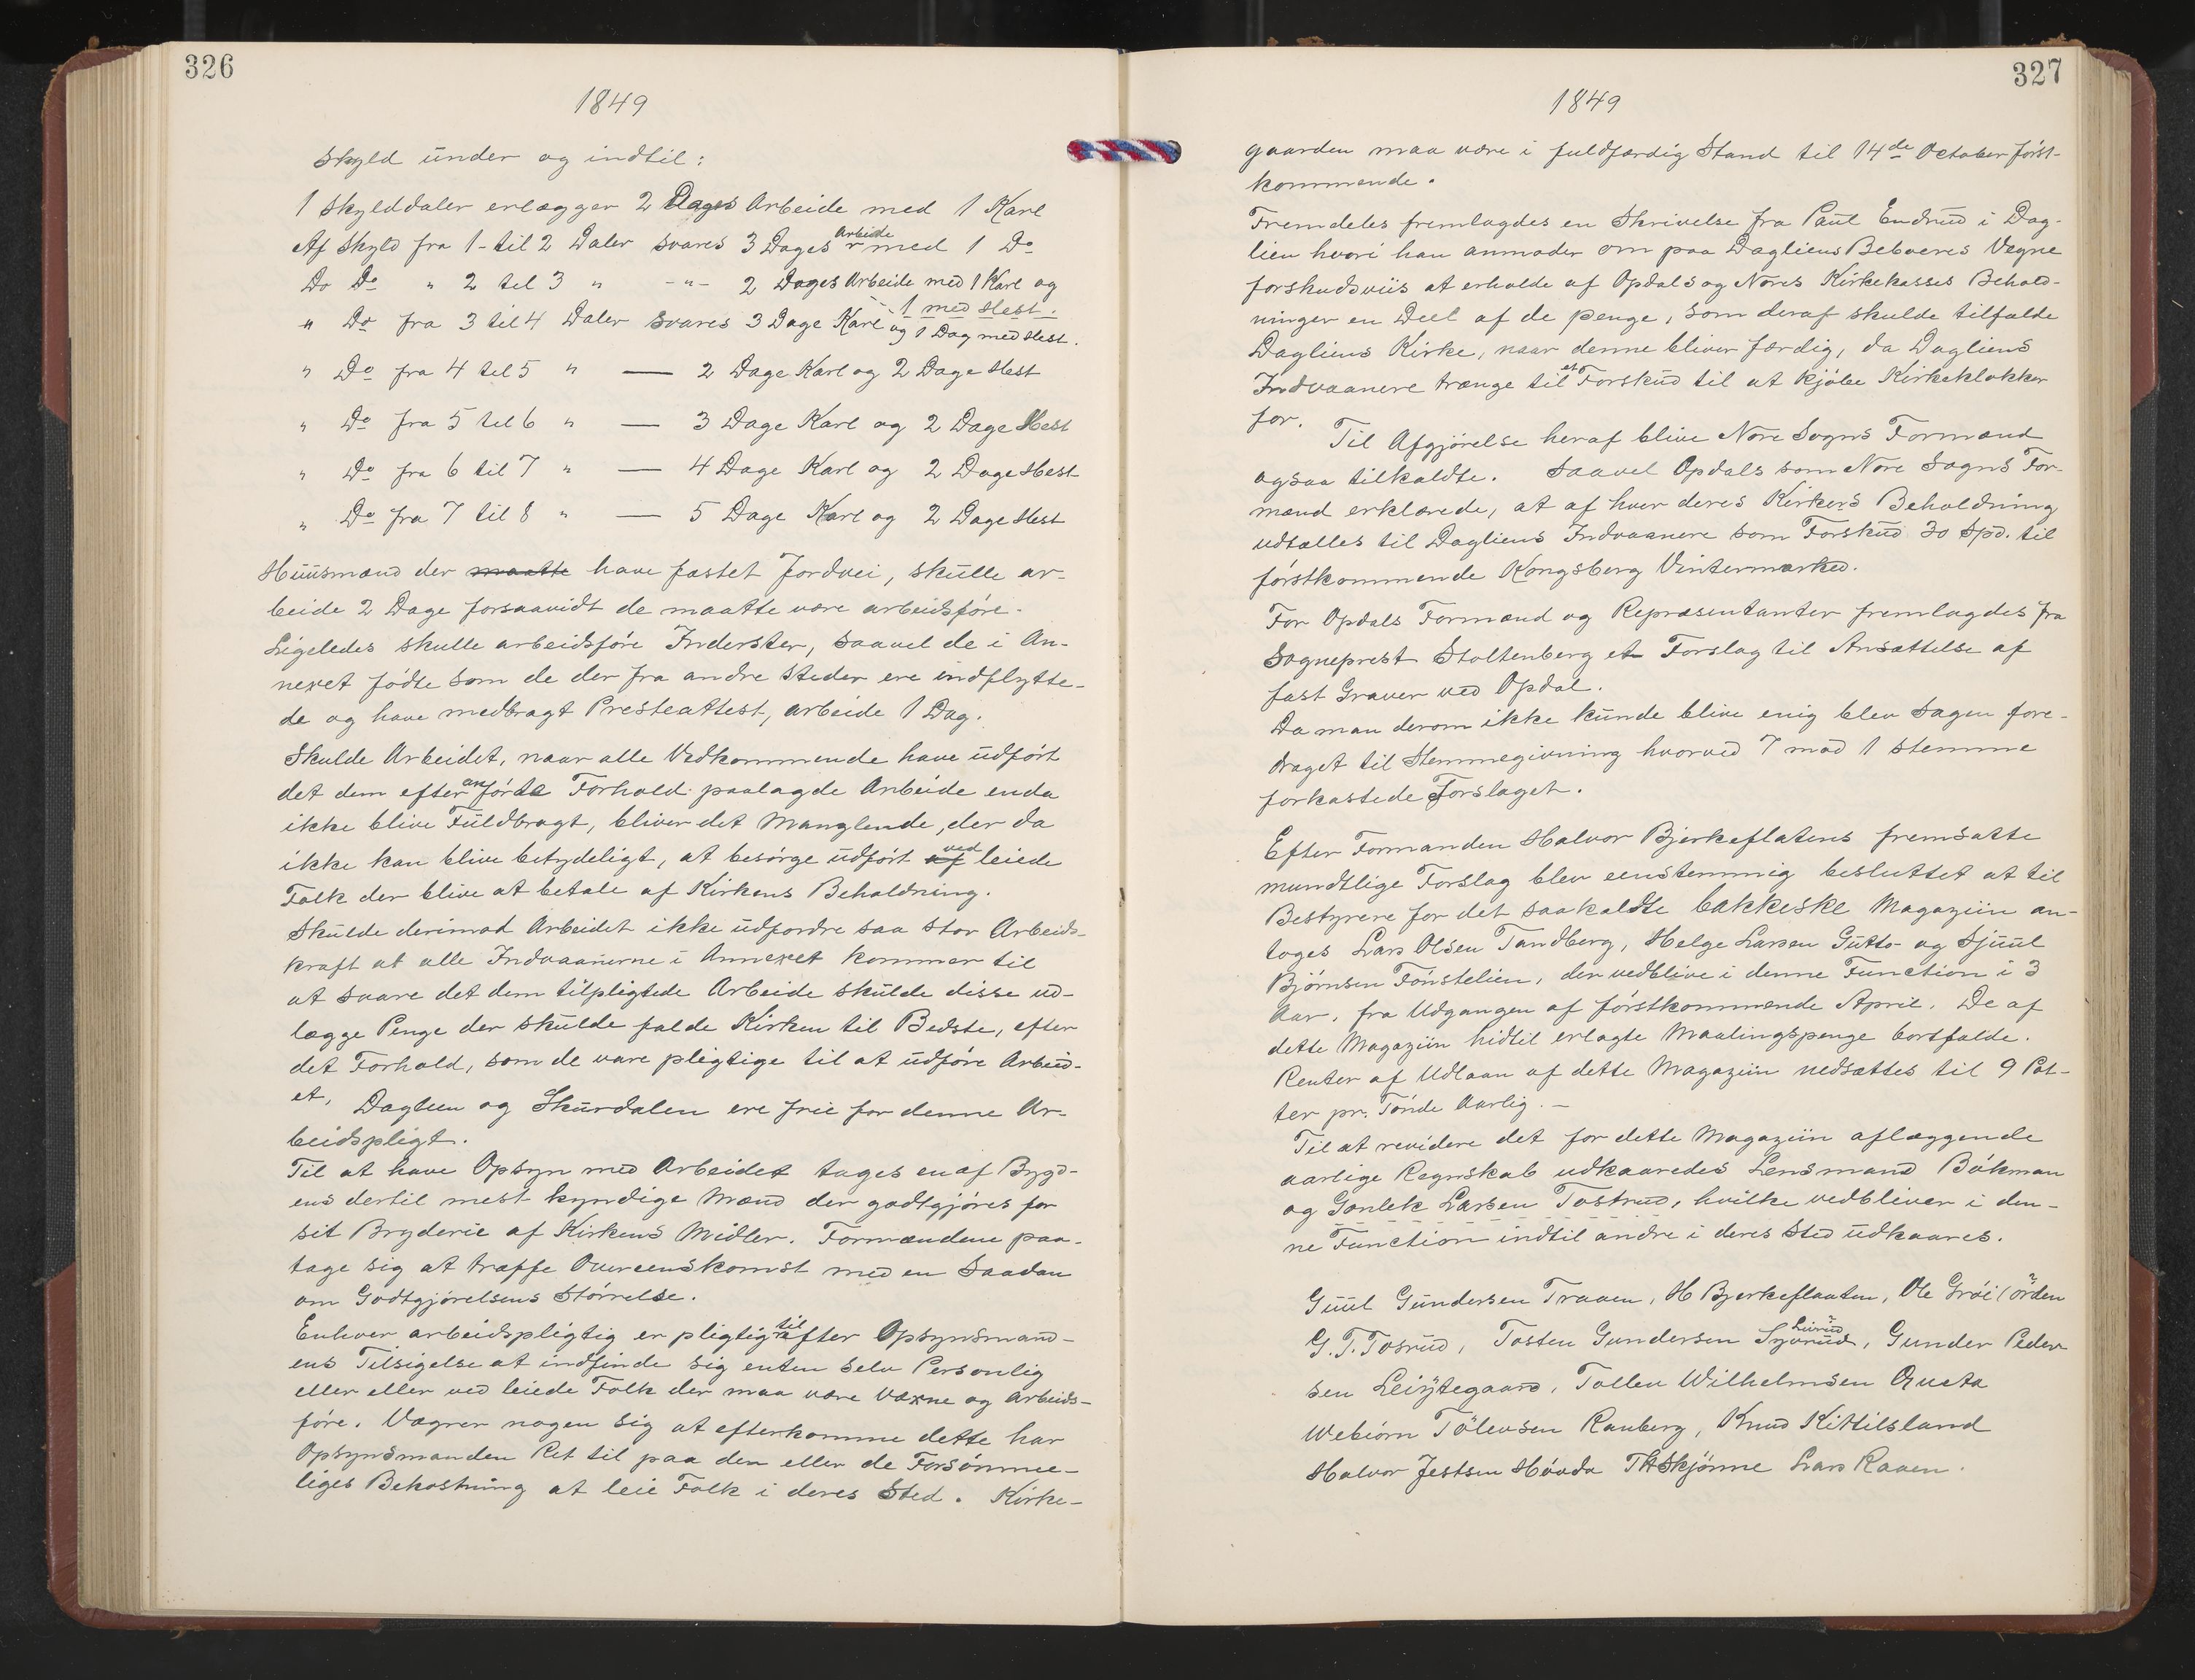 326
1849
Skyld under og indtil:
1 Skylddaler erlægger 2 Dages Arbeide med 1 Karl
Af Skyld fra 1- til 2 Daler svares 3 Dages Arbeide med 1 Do
Do Do " 2 til 3 " -"- 2 Dages Arbeide med 1 Karl og
1 med Hest.
" Do fra 3 til 4 Daler svares 3 Dage Karl og 1 Dag med Hest.
" Do fra 4 til 5 " — 2 Dage Karl og 2 Dage Hest
" Do fra 5 til 6 " — 3 Dage Karl og 2 Dage Hest
" Do fra 6 til 7 " — 4 Dage Karl og 2 Dage Hest
" Do fra 7 til 8 " — 5 Dage Karl og 2 Dage Hest
Huusmænd der maatte have fæstet Jordvei, skulle ar-
beide 2 Dage forsaavidt de maatte være arbeidsføre.
Ligeledes skulle arbeidsføre Inderster, saavel de i An-
nexet fødte som de der fra andre Steder ere indflytte-
de og have medbragt Presteattest, arbeide 1 Dag.
Skulde Arbeidet, naar alle Vedkommende have udført
det dem efter anførte Forhold paalagde Arbeide enda
ikke blive Fuldbragt, bliver det Manglende, der da
ikke kan blive betydeligt, at besørge udført af ved leiede
Folk der blive at betale af Kirkens Beholdning.
Skulde derimod Arbeidet ikke udfordre saa stor Arbeids-
kraft at alle Indvaanerne i Annexet kommer til
at svare det dem tilpligtede Arbeide skulde disse ud-
lægge Penge der skulde falde Kirken til Bedste, efter
det Forhold, som de vare pligtige til at udføre Arbeid-
et. Daglien og Skurdalen ere frie for denne Ar-
beidspligt.
Til at have Opsyn med Arbeidet tages en af Bygd-
ens dertil mest kyndige Mænd der godtgjøres for
sit Bryderie af Kirkens Midler. Formændene paa-
tage sig at træffe Overeenskomst med en Saadan
om Godtgjørelsens Størrelse.
Enhver arbeidspligtig er pligtig til efter Opsynsmand-
ens Tilsigelse at indfinde sig enten selv Personlig
eller eller ved leiede Folk der maa være Voxne og Arbeids-
føre. Vægrer nogen sig at efterkomme dette har
Opsynsmanden Ret til paa den eller de Forsømme-
liges Bekostning at leie Folk i deres Sted. Kirke-
327
1849
gaarden maa være i fuldfærdig Stand til 14de October først-
kommende.
Fremdeles fremlagdes en Skrivelse fra Paul Endrud i Dag-
lien hvori han anmoder om paa Dagliens Beboeres Vegne
forskudsviis at erholde af Opdals og Nores Kirkekasses Behold-
ninger en Deel af de penge, som deraf skulde tilfalde
Dagliens Kirke, naar denne bliver færdig, da Dagliens
Indvaanere trænge til et Forskud til at kjøbe Kirkeklokker
for.
Til Afgjørelse heraf blive Nore Sogns Formænd
ogsaa tilkaldte. Saavel Opdals som Nore Sogns For-
mænd erklærede, at af hver deres Kirkers Beholdning
udtælles til Dagliens Indvaanere som Forskud 30 Spd. til
førstkommende Kongsberg Vintermarked.
For Opdals Formænd og Repræsentanter fremlagdes fra
Sogneprest Stoltenberg et Forslag til Ansættelse af
fast Graver ved Opdal.
Da man derom ikke kunde blive enig blev Sagen fore-
draget til Stemmegivning hvorved 7 mod 1 stemme
forkastede Forslaget.
Efter Formanden Halvor Bjerkeflatens fremsatte
mundtlige Forslag blev eenstemmig besluttet at til
Bestyrere for det saakaldte bakkeske Magaziin an-
toges Lars Olsen Tandberg, Helge Larsen Gutto- og Sjuul
Bjørnsen Fønstelien, der vedblive i denne Function i 3
Aar, fra Udgangen af førstkommende April. De af
dette Magaziin hidtil erlagte Maalingspenge bortfalde.
Renter af Udlaan af dette Magaziin nedsættes til 9 Pot-
ter pr. Tønde Aarlig. —
Til at revidere det for dette Magaziin aflæggende
aarlige Regnskab udkaaredes Lensmand Bökman
og Gonlek Larsen Tostrud, hvilke vedbliver i den-
ne Function indtil andre i deres Sted udkaares.
Guul Gundersen Traaen, H Bjerkeflaaten, Ole Grøi(örden
G. T. Tosrud, Tosten Gundersen Syvrud, Gunder Peder
sen Leiÿtegaard, Tollev Wilhelmsen Qveta
Webiörn Tölevsen Ranberg, Knud Kittilsland
Halvor Jestsen Hövda TH Skjönne Lars Raaen.